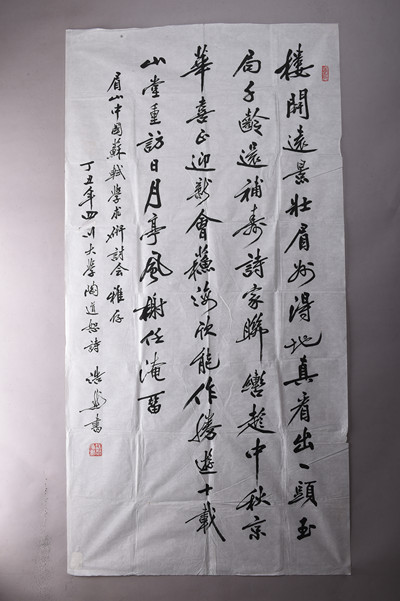 楼開遠景壯眉州得地真省出一頭玉
局千齡還補壽詩家聯轡趁中秋京
華喜正迎新會蘇海欣能作勝遊十載
山堂重訪日月亭風榭任淹留
眉山中國蘇軾學术研討会雅存
丁丑年四川大學陶道恕詩 書